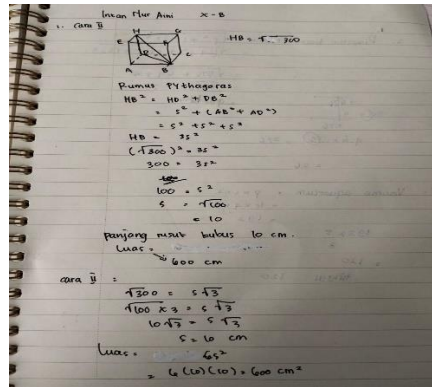 Intan Nur Aini X - B
1. Cara II
H G
E F
HB = √300
D C
A B
Rumus Pythagoras
HB² = HD² + DB²
= s² + (AB² + AD²)
= s² + s² + s²
HB = 3s²
(√300)² = 3s²
300 = 3s²
100 = s²
s = √100
= 10
panjang rusuk kubus 10 cm.
Luas =
600 cm
cara II =
√300 = s√3
√100 x 3 = s√3
10√3 = s√3
s = 10 cm
Luas = 6s²
= 6 (10) (10) = 600 cm²